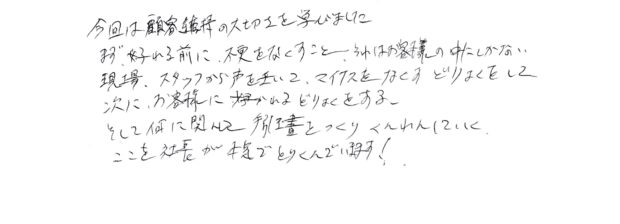 今回は顧客維持の大切さを学びました
まず、好かれる前に、不便をなくすこと、それはお客様の中にしかない
現場、スタッフから声を聞いて、マイナスをなくすどりょくをして
次に、お客様に好かれるどりょくをする。
そして何に関して計画書をつくりくんれんしていく
ここを社長が本気でとりくんでいます!